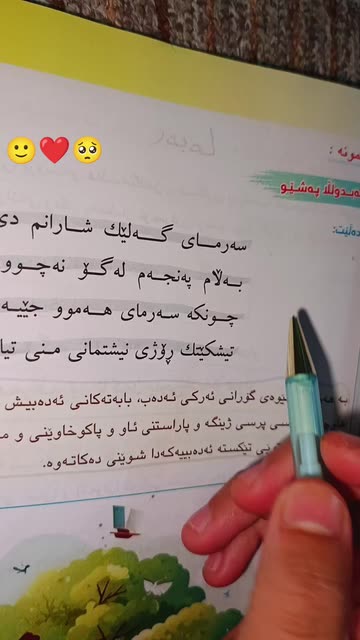 مونە :
عەبدوڵڵا پەشێو
دەڵێت:
سەرمای گەلێك شارانم دی
بەڵام پەنجەم لەگۆ نەچوو
چونکە سەرمای هەموو جێیە
تیشکێك ڕۆژی نیشتمانی منی تیا
گۆرانی ئەرکی ئەدەب، بابەتەکانی ئەدەبیش
پرسی ژینگە و پاراستنی ئاو و پاکوخاوێنی و
تێکستە ئەدەبییەکەدا شوێنی دەکاتەوە.